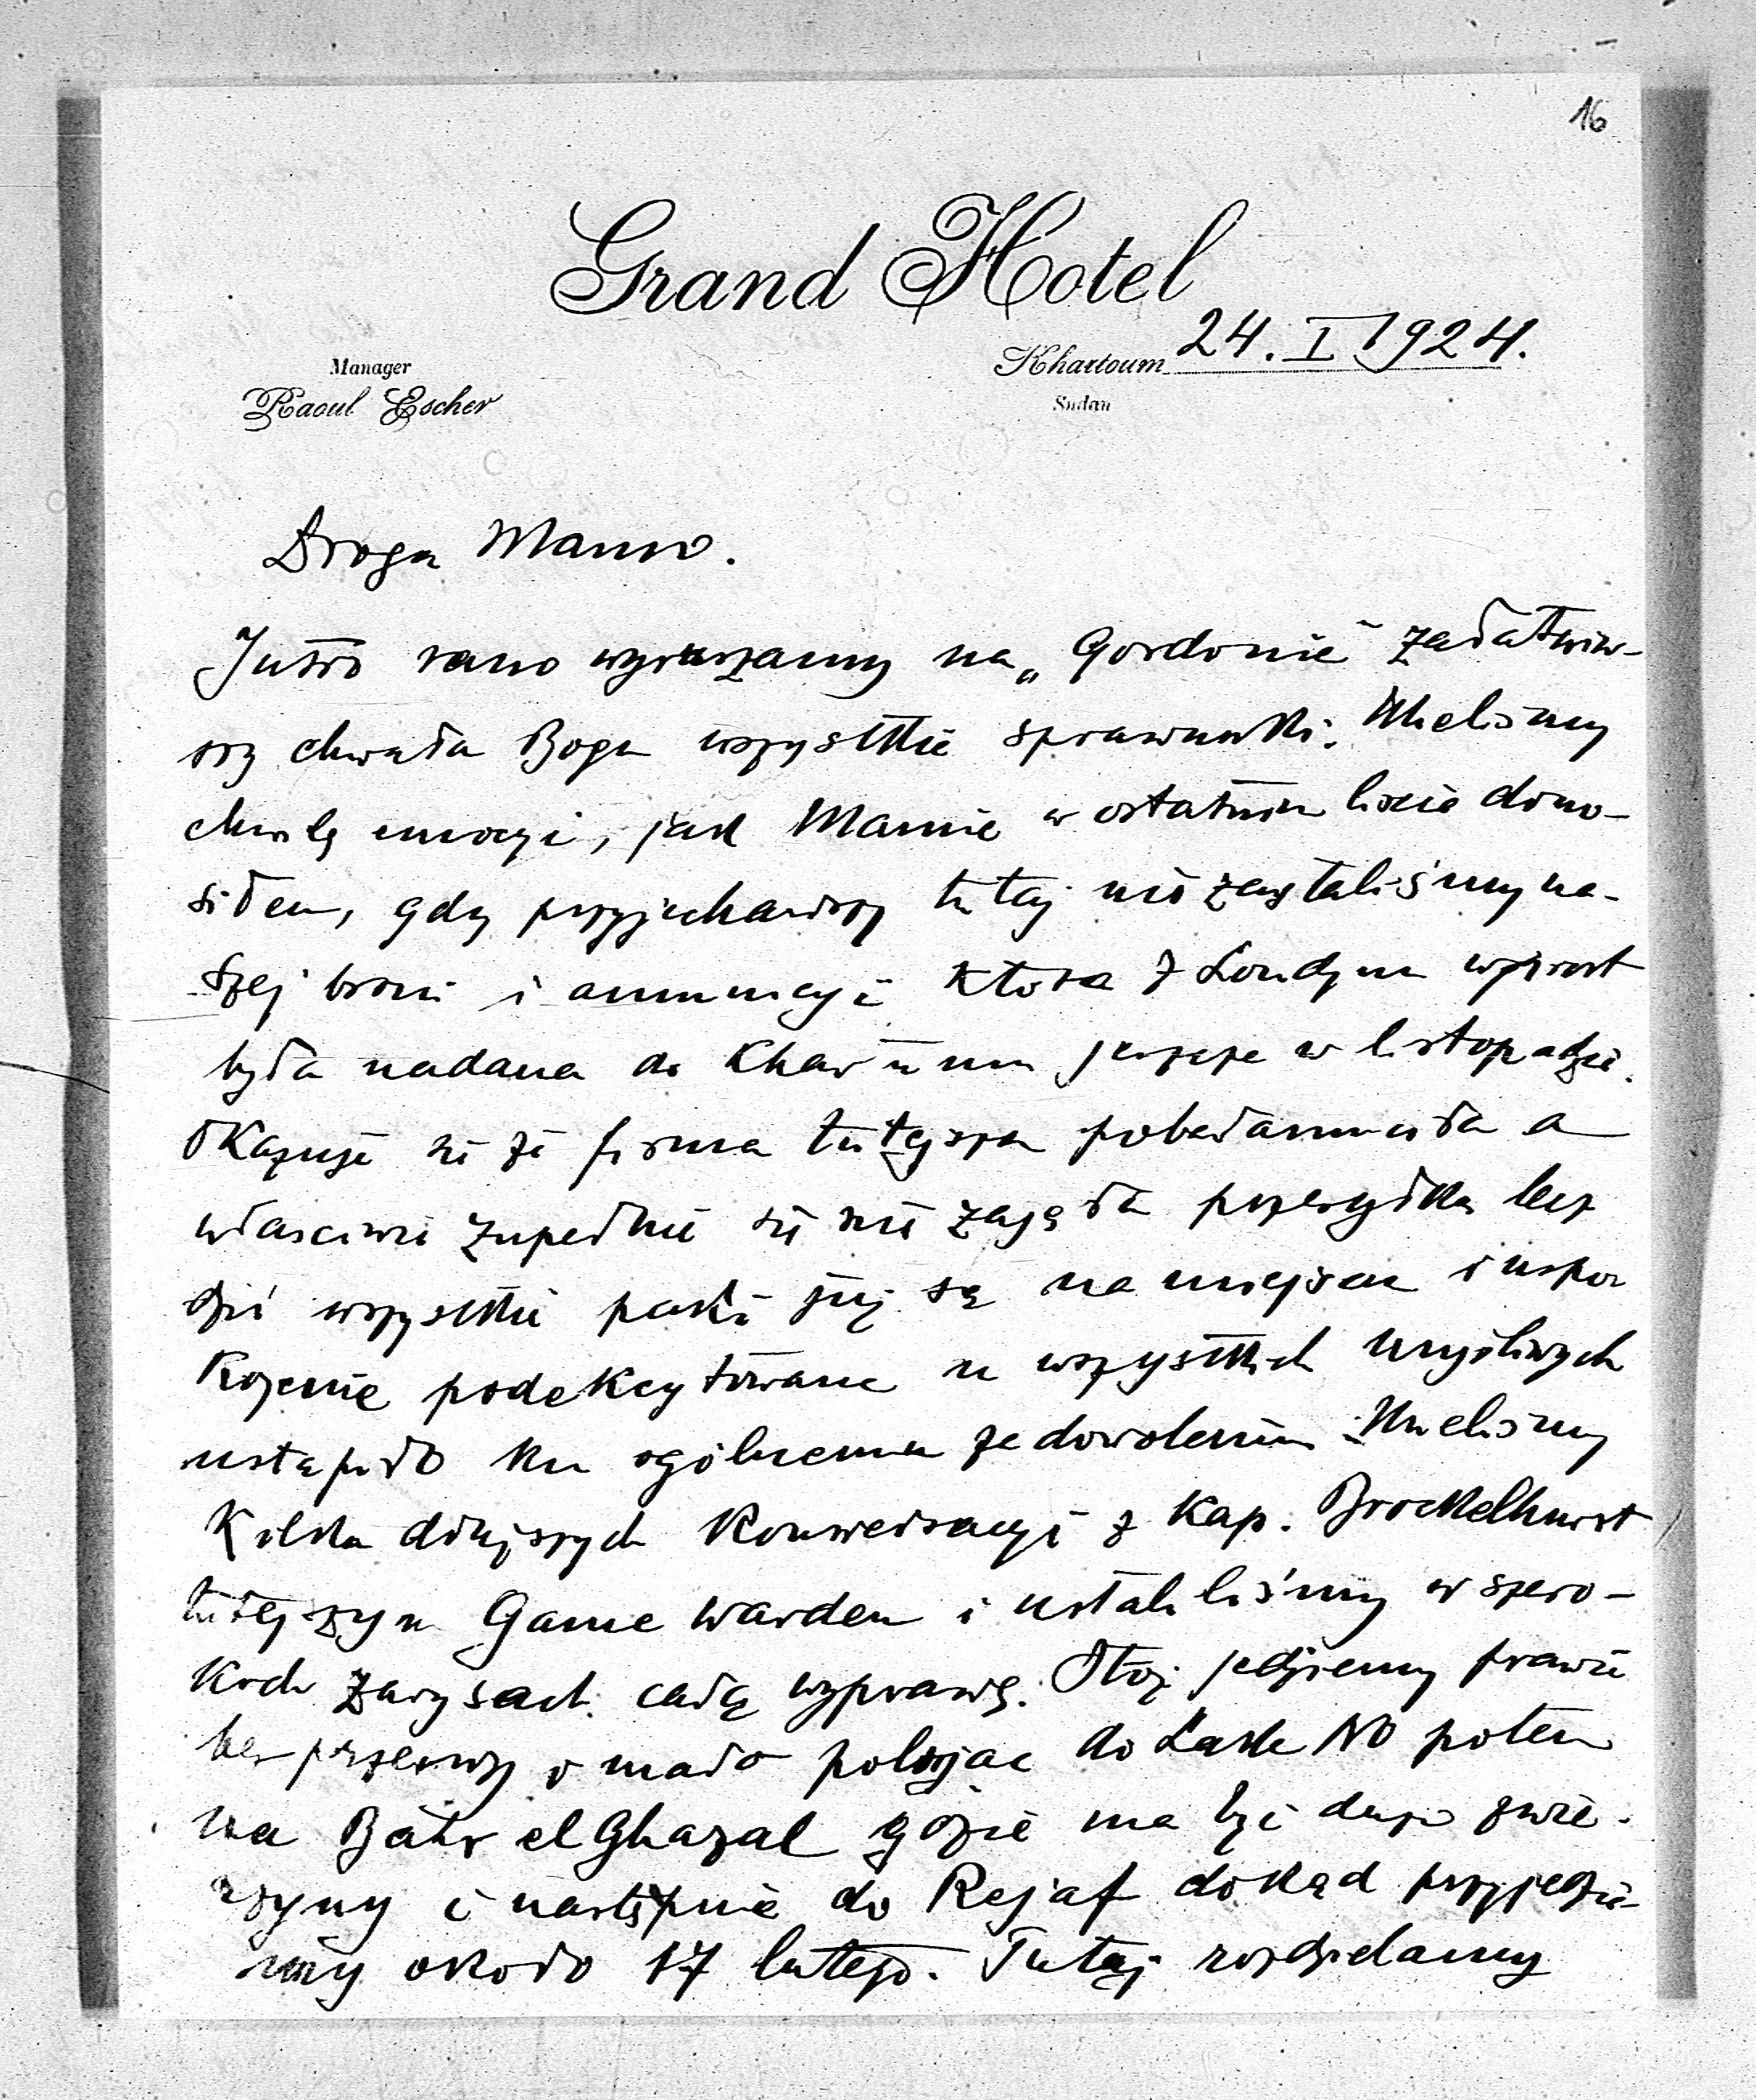 16
Grand Hotel
Khartoum 24. I 1924.
Sudan
Manager
Raoul Escher
Droga Mamo.
Jutro rano wyruszamy na „Gordonie" załatwiw-
szy chwała Bogu wszystkie sprawunki. Mieliśmy
chwilę emocyi, jak Mamie w ostatnim liście dono-
siłem, gdy przyjechawszy tutaj nie zastaliśmy na-
szej broni i amunicyi która z Londynu wprost
była nadana do Khartumu jeszcze w listopadzie.
Okazuje się że firma tutejsza pobałamuciła a
właściwie zupełnie się nie zajęła przesyłką lecz
dziś wszystkie paki już są na miejscu i uspo
kojenie podekscytowane u wszystkich myśliwych
ustąpiło ku ogólnemu zadowoleniu. Mieliśmy
Kilka dłuższych konwersacyi z Kap. Brockelhurst
tutejszym Game Warden i ustaliliśmy w szero-
kich zarysach całą wyprawę. Otóż jedziemy prawie
bez przerwy mało polując do Lake No potem
na Bahr el Ghazal gdzie ma być dużo zwie-
rzyny i następnie do Rejaf dokąd przyjedzie-
my około 17 lutego. Tutaj rozdzielamy